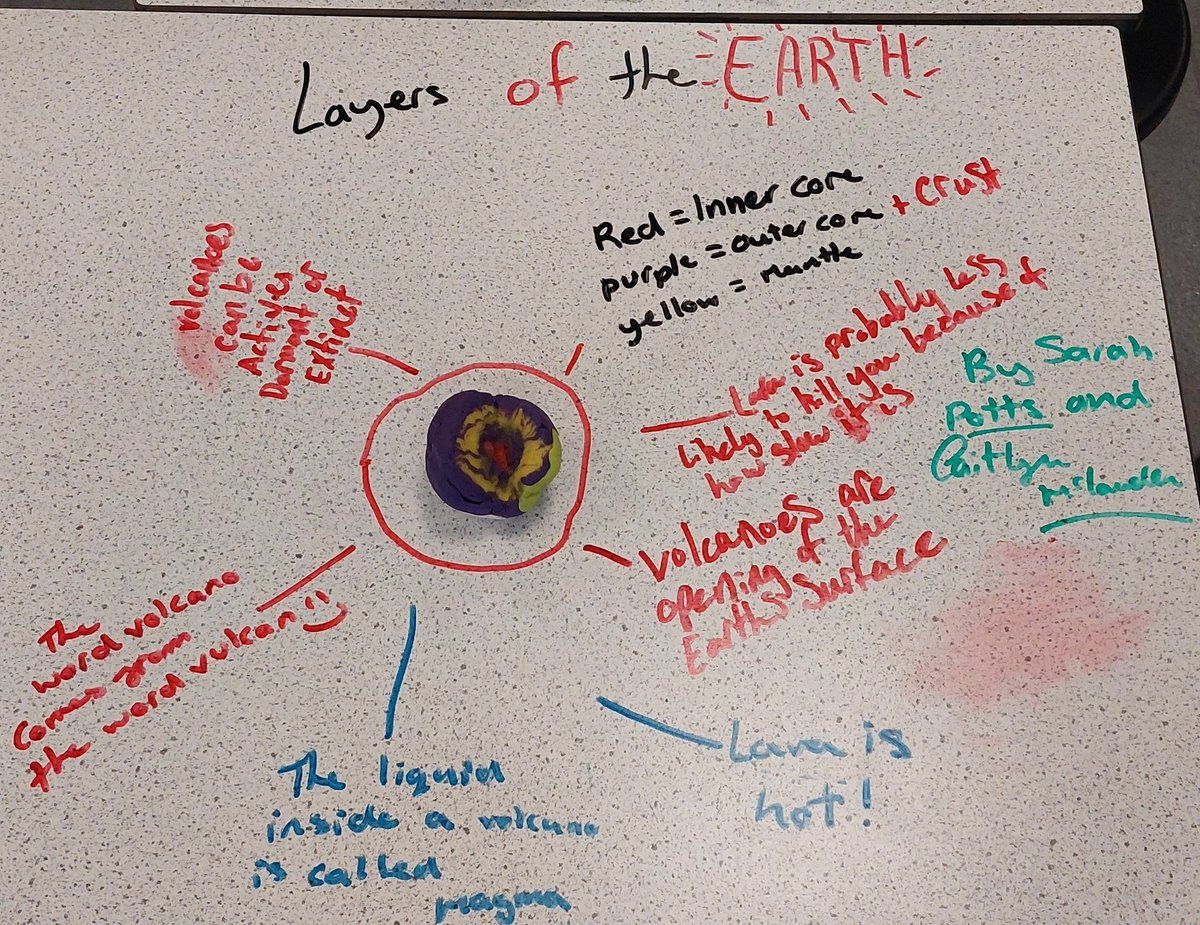 Layers of the EARTH
Red = Inner core
purple = outer core + crust
yellow = Mantle
volcanoes
can be
Active,
Dormant or
Extinct
Lava is probably less
likely to kill you because of
how slow it is
By Sarah
Potts and
Caitlyn
volcanoes are
opening of the
Earth's Surface
The
word volcano
comes from
the word vulcan
The liquid
inside a volcano
is called
magma
Lava is
hot!